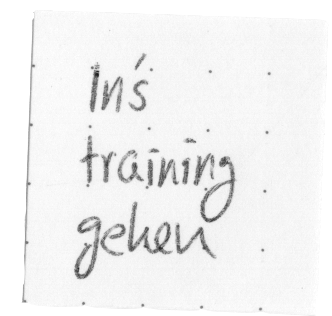 In's
training
gehen